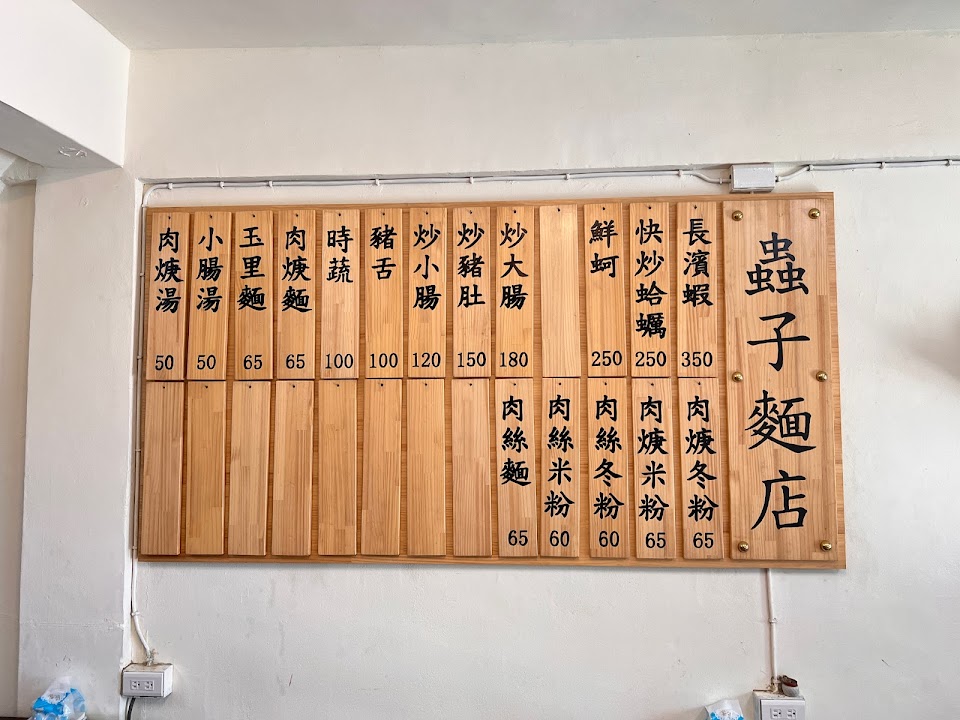 蟲子麵店
長濱蝦 350
快炒蛤蠣 250
鮮蚵 250
炒大腸 180
炒豬肚 150
炒小腸 120
豬舌 100
時蔬 100
肉焿麵 65
玉里麵 65
小腸湯 50
肉焿湯 50
肉焿冬粉 65
肉焿米粉 65
肉絲冬粉 60
肉絲米粉 60
肉絲麵 65